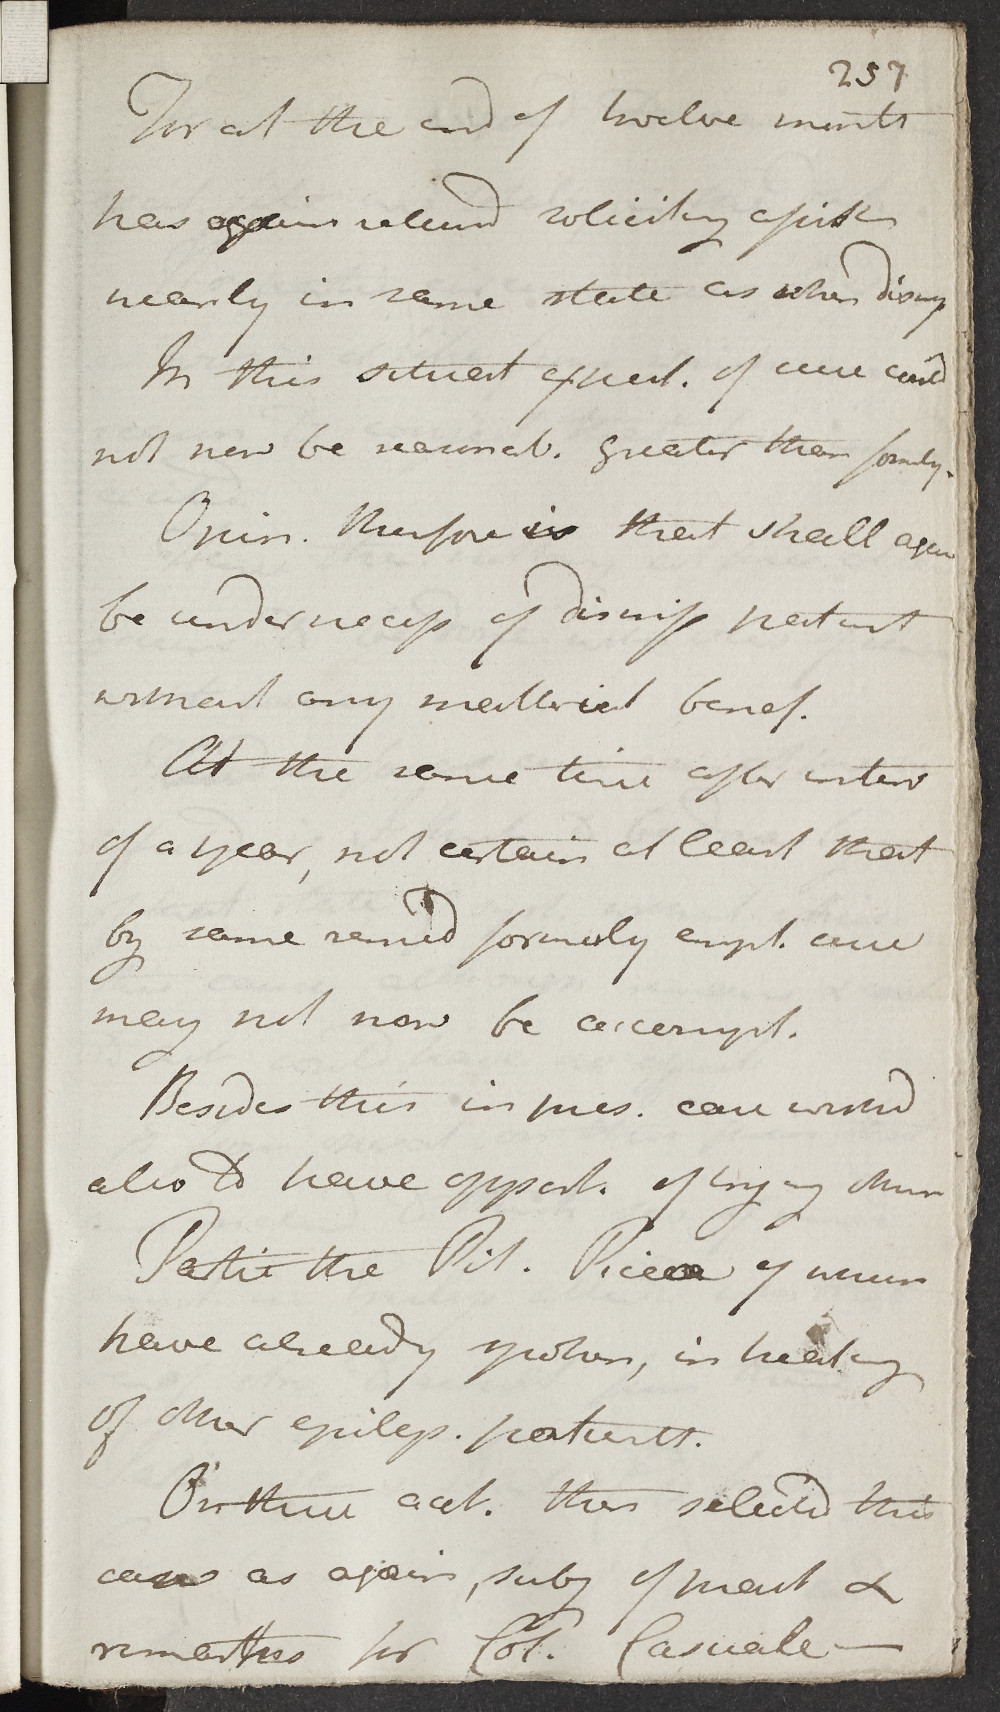 257
For at the end of twelve month
has again returnd soliciting assist
nearly in same state as when dismiss
In this situat expect. of cure could
not now be reasonab. greater than formely.
Opin. therfore is that shall again
be under necess of dismiss patient
without any matterial benef.
At the same time after interv
of a year, not certain at least that
by same remed formerly empl. cure
may not now be accompl.
Besides this in pres. case wishd
also to have opport. of trying other
Partic the Pil. of whose
have already spoken, in treating
of other epilep. patients.
On these act. then selected this
case as again, subj of treat &
remarks for Col. Casuale —